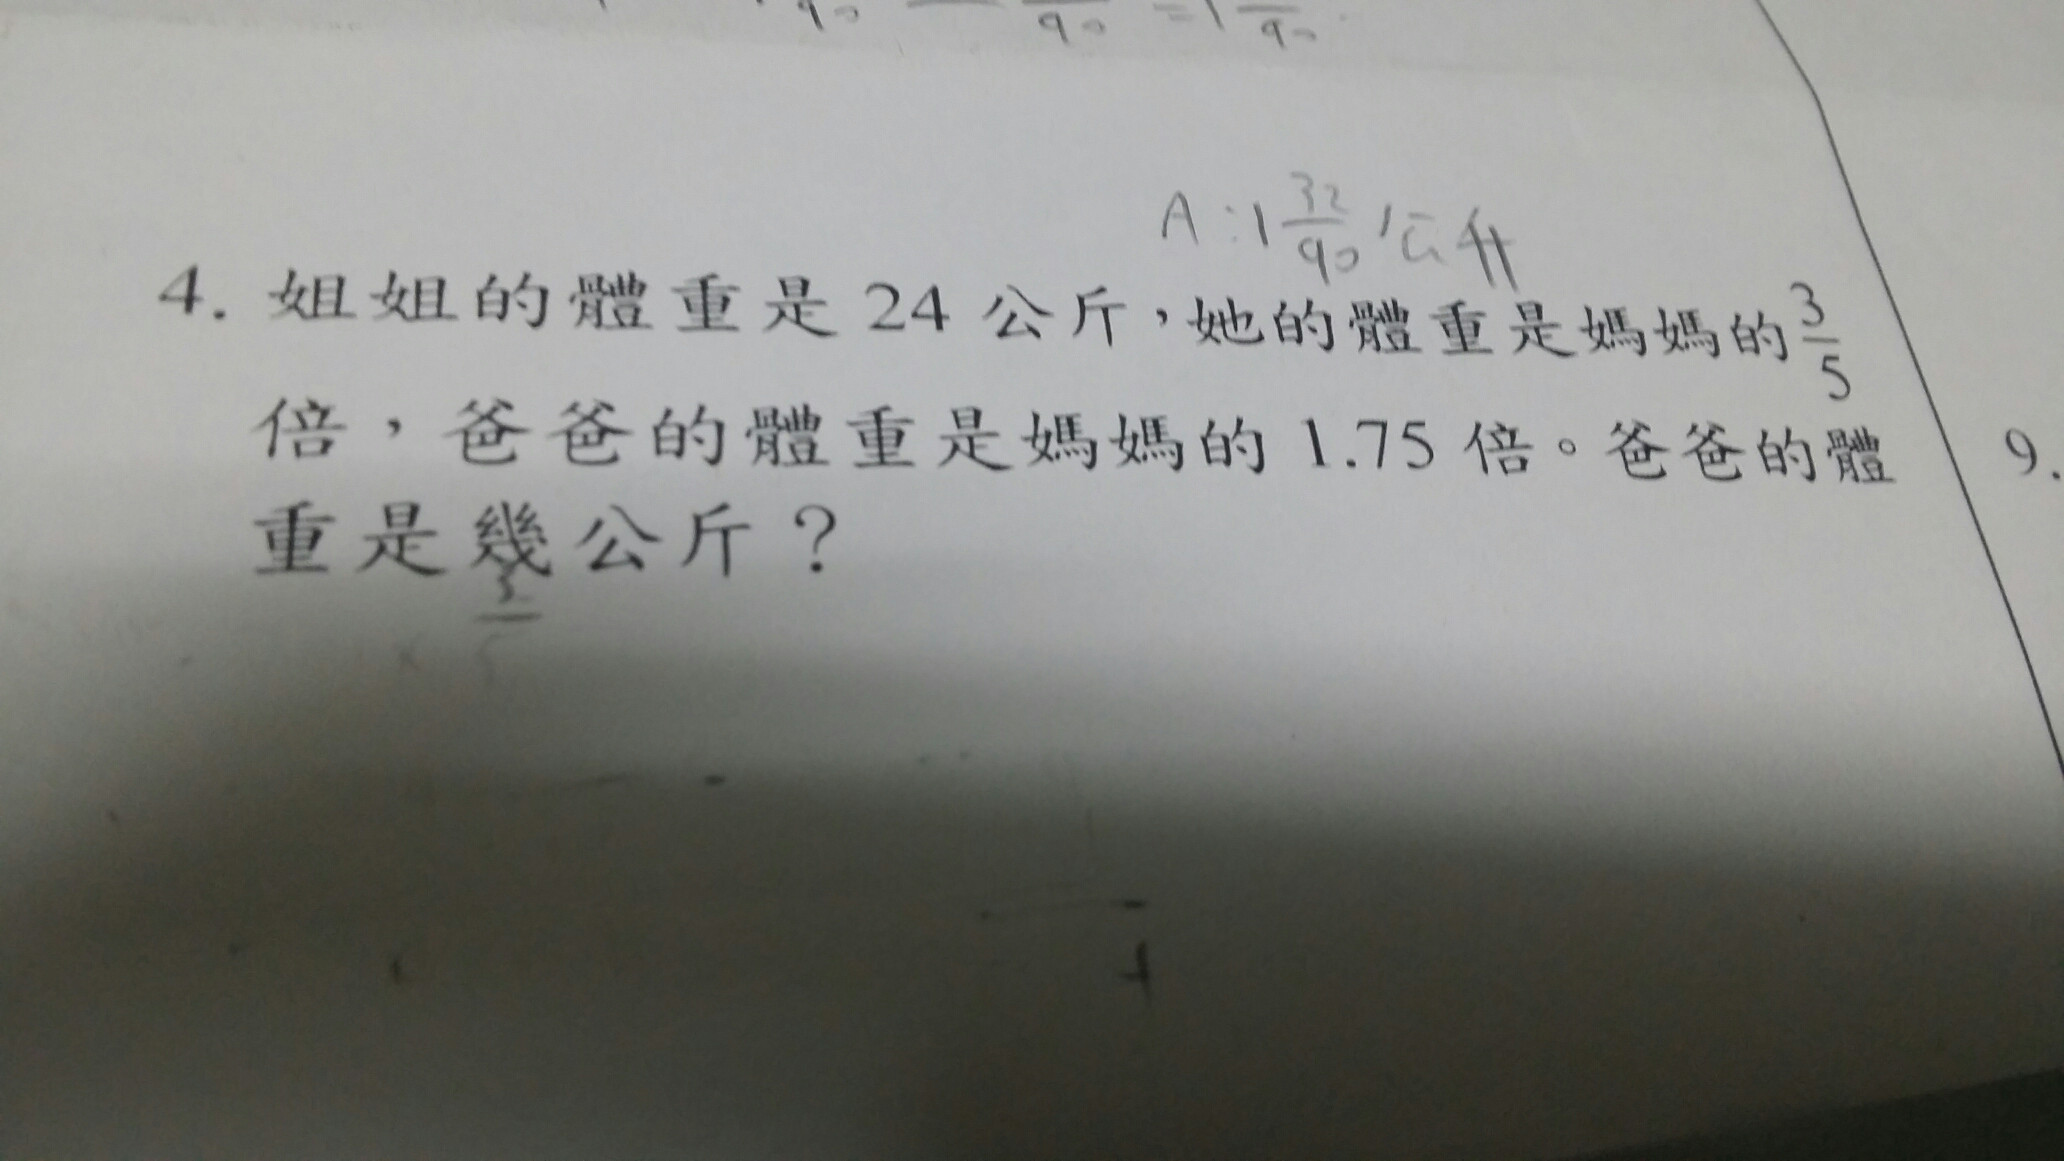 90 90 =1 90
A:1 32/90 公升
4. 姐姐的體重是 24 公斤,她的體重是媽媽的 3/5
倍,爸爸的體重是媽媽的 1.75 倍。爸爸的體
重是幾公斤?
9.